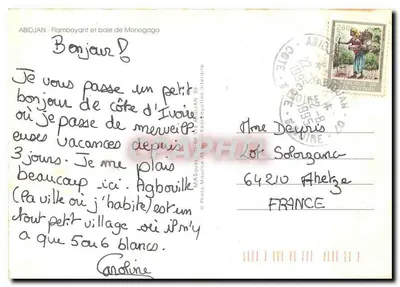 ABIDJAN - Flamboyant et baie de Monogaga
Bonjour !
Je vous passe un petit
bonjour de côte d'Ivoire
où je passe de merveill-
euses vacances depuis
3 jours. Je me plais
beaucoup ici. Agboville
(la ville où j'habite) est un
tout petit village où il n'y
a que 5 ou 6 blancs.
Caroline
Mme
64210 Ahetze
FRANCE